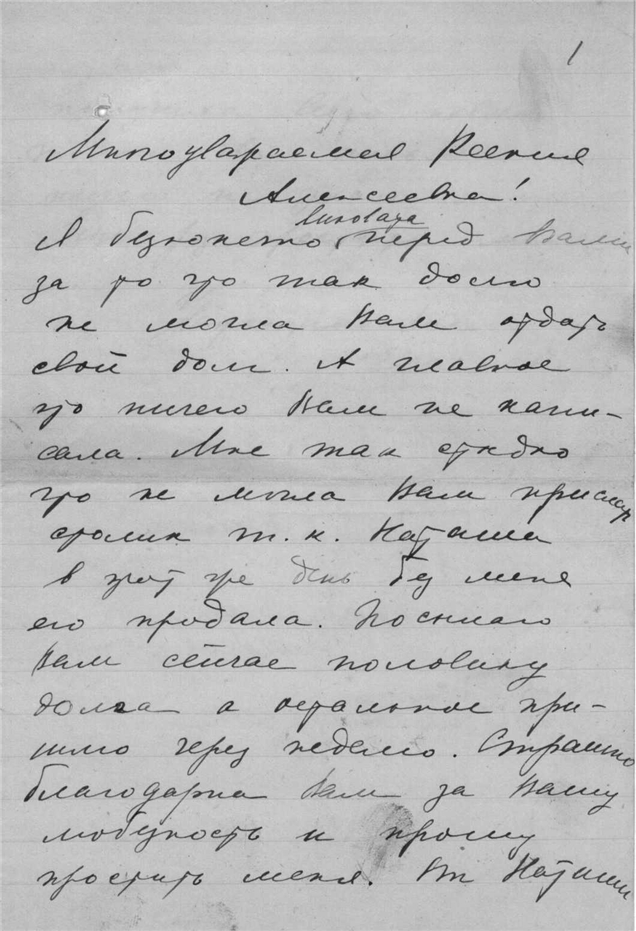 1
Многоуважаемая Ксения
Алексеевна!
виновата
Я бесконечно перед Вами
за то что так долго
не могла Вам отдать
свой долг. А главное
что ничего Вам не напи-
сала. Мне так стыдно
что не могла Вам прислать
столик т.к. Наташа
в этот же день без меня
его продала. Посылаю
Вам сейчас половину
долга а остальное при-
шлю через неделю. Страшно
благодарна Вам за Вашу
любезность и прошу
простить меня. От Наташи